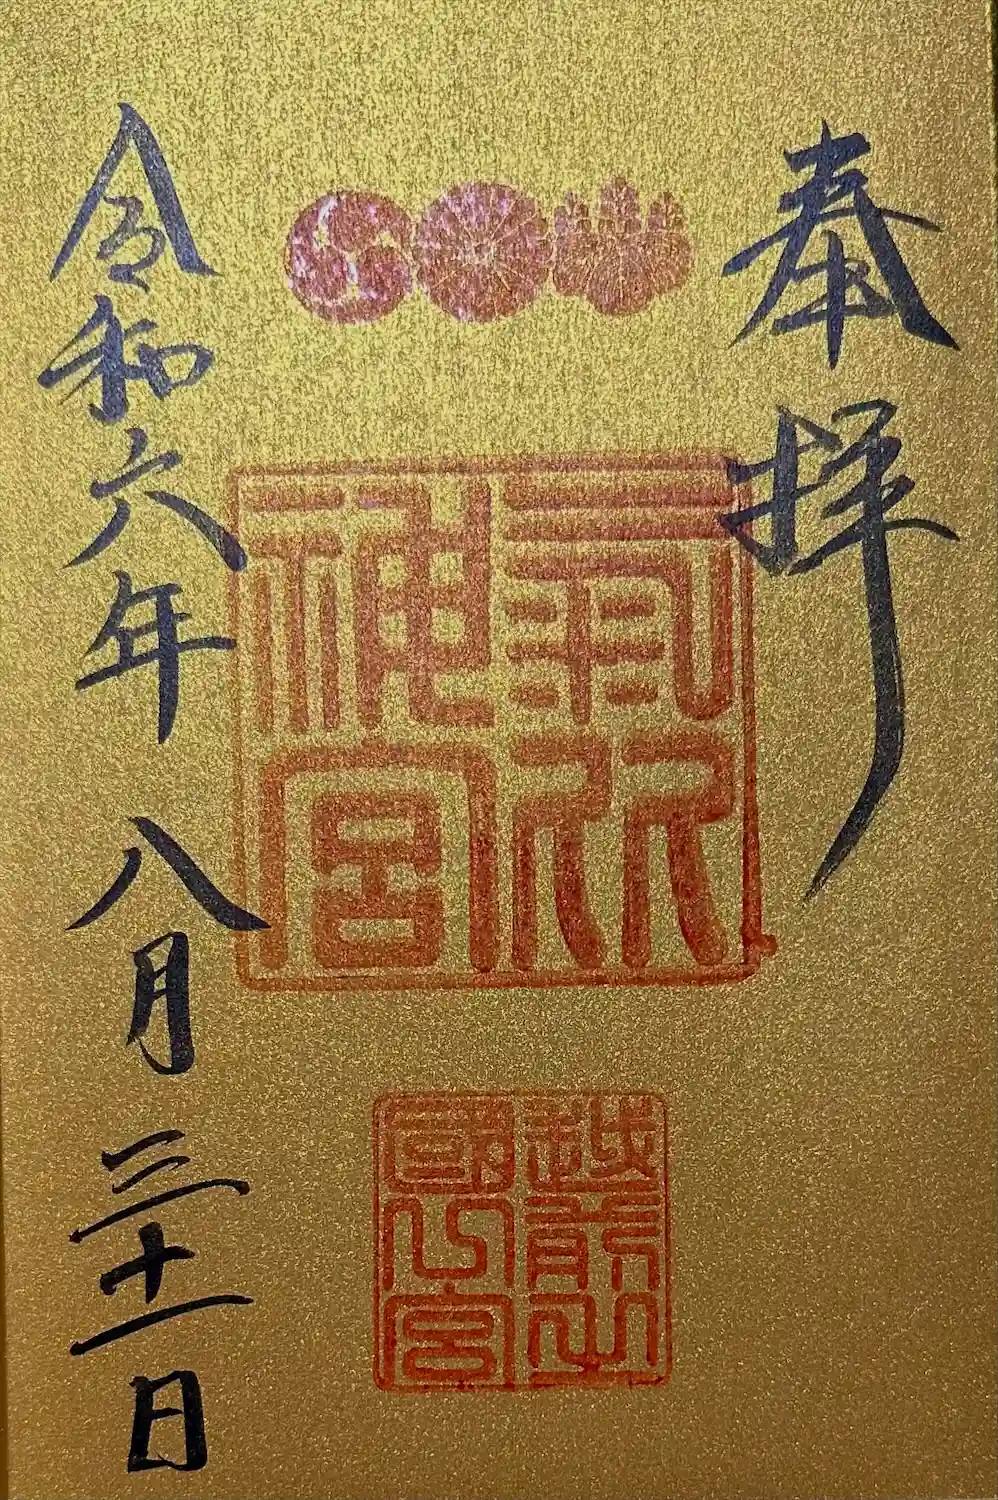 奉拝
氣比
神宮
越前之
國一宮
令和六年 八月 三十一日